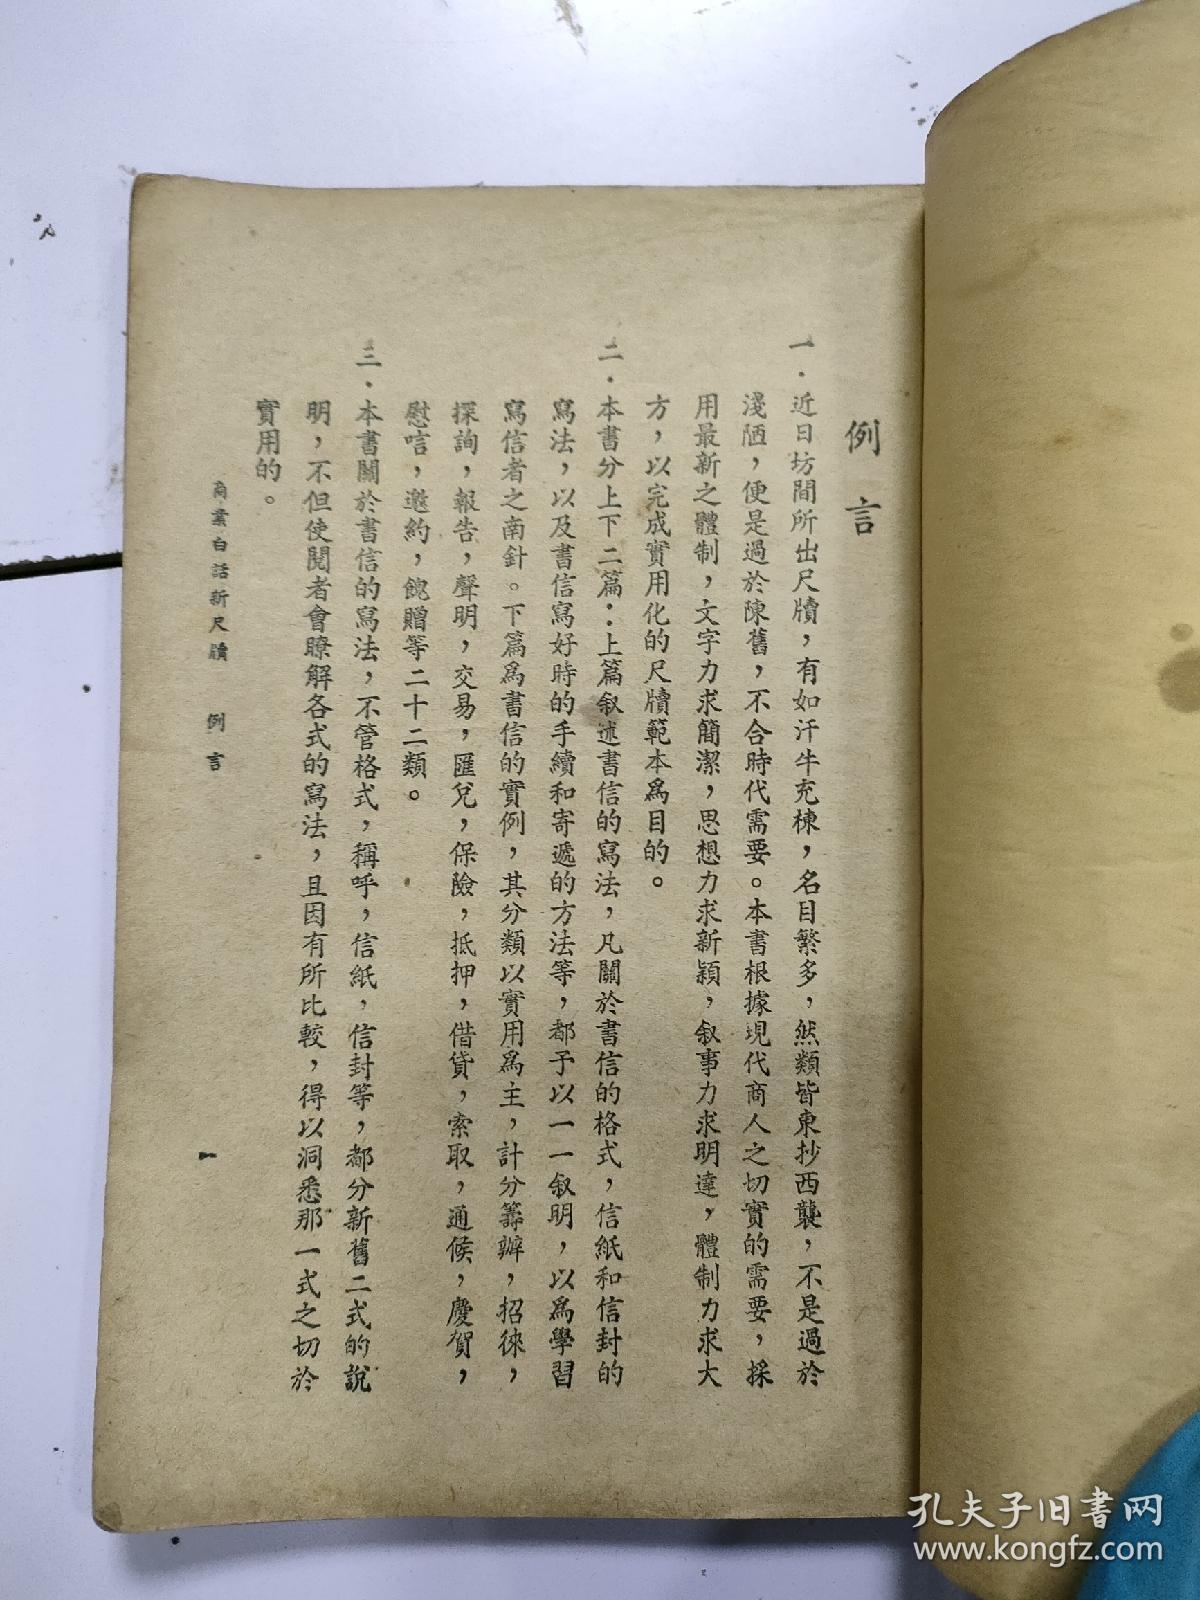 例言
一．近日坊間所出尺牘，有如汗牛充棟，名目繁多，然類皆東抄西襲，不是過於
淺陋，便是過於陳舊，不合時代需要。本書根據現代商人之切實的需要，採
用最新之體制，文字力求簡潔，思想力求新穎，叙事力求明達，體制力求大
方，以完成實用化的尺牘範本爲目的。
二．本書分上下二篇：上篇叙述書信的寫法，凡關於書信的格式，信紙和信封的
寫法，以及書信寫好時的手續和寄遞的方法等，都予以一一叙明，以爲學習
寫信者之南針。下篇爲書信的實例，其分類以實用爲主，計分籌辦，招徠，
探詢，報告，聲明，交易，匯兌，保險，抵押，借貸，索取，通候，慶賀，
慰唁，邀約，餽贈等二十二類。
三．本書關於書信的寫法，不管格式，稱呼，信紙，信封等，都分新舊二式的說
明，不但使閱者會瞭解各式的寫法，且因有所比較，得以洞悉那一式之切於
實用的。
商業白話新尺牘 例言
一
孔夫子旧书网
www.kongfz.com